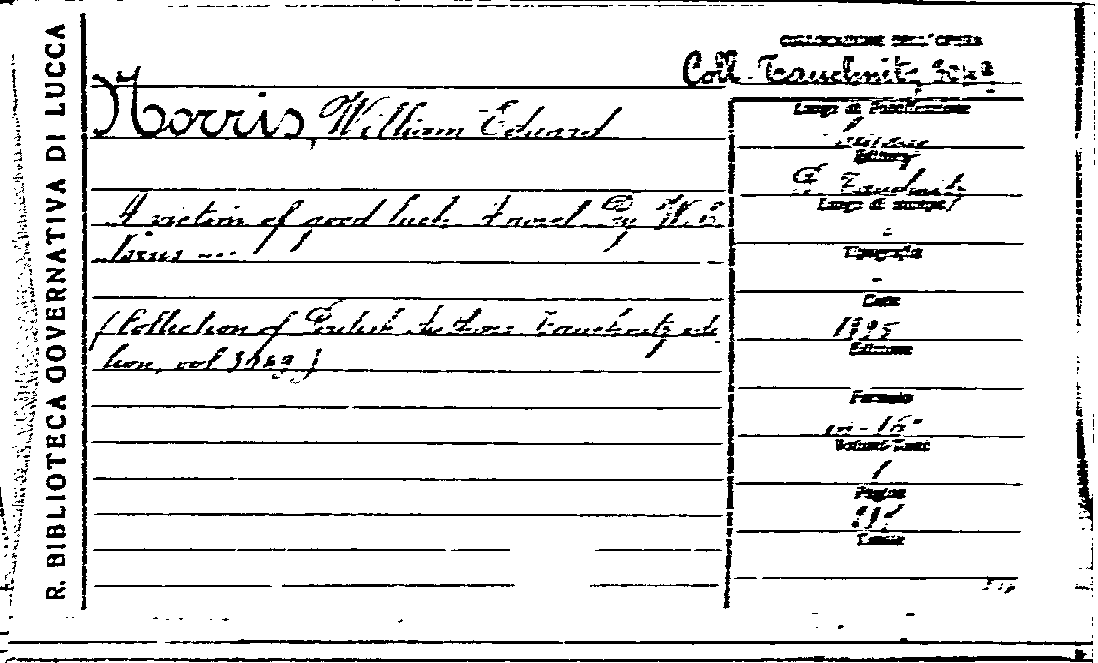 R. BIBLIOTECA GOVERNATIVA DI LUCCA
COLLOCAZIONE DELL'OPERA
Coll. Tauchnitz
Norris, William Eduard
A victim of good luck. A novel By W. E.
Norris ....
(Collection of British Authors Tauchnitz edi-
tion, vol
Luogo di Pubblicazione
Editore
B. Tauchnitz
Luogo di stampa
-
Tipografia
-
Data
1895
Edizione
Formato
in-16°
Volumi
1
Pagine